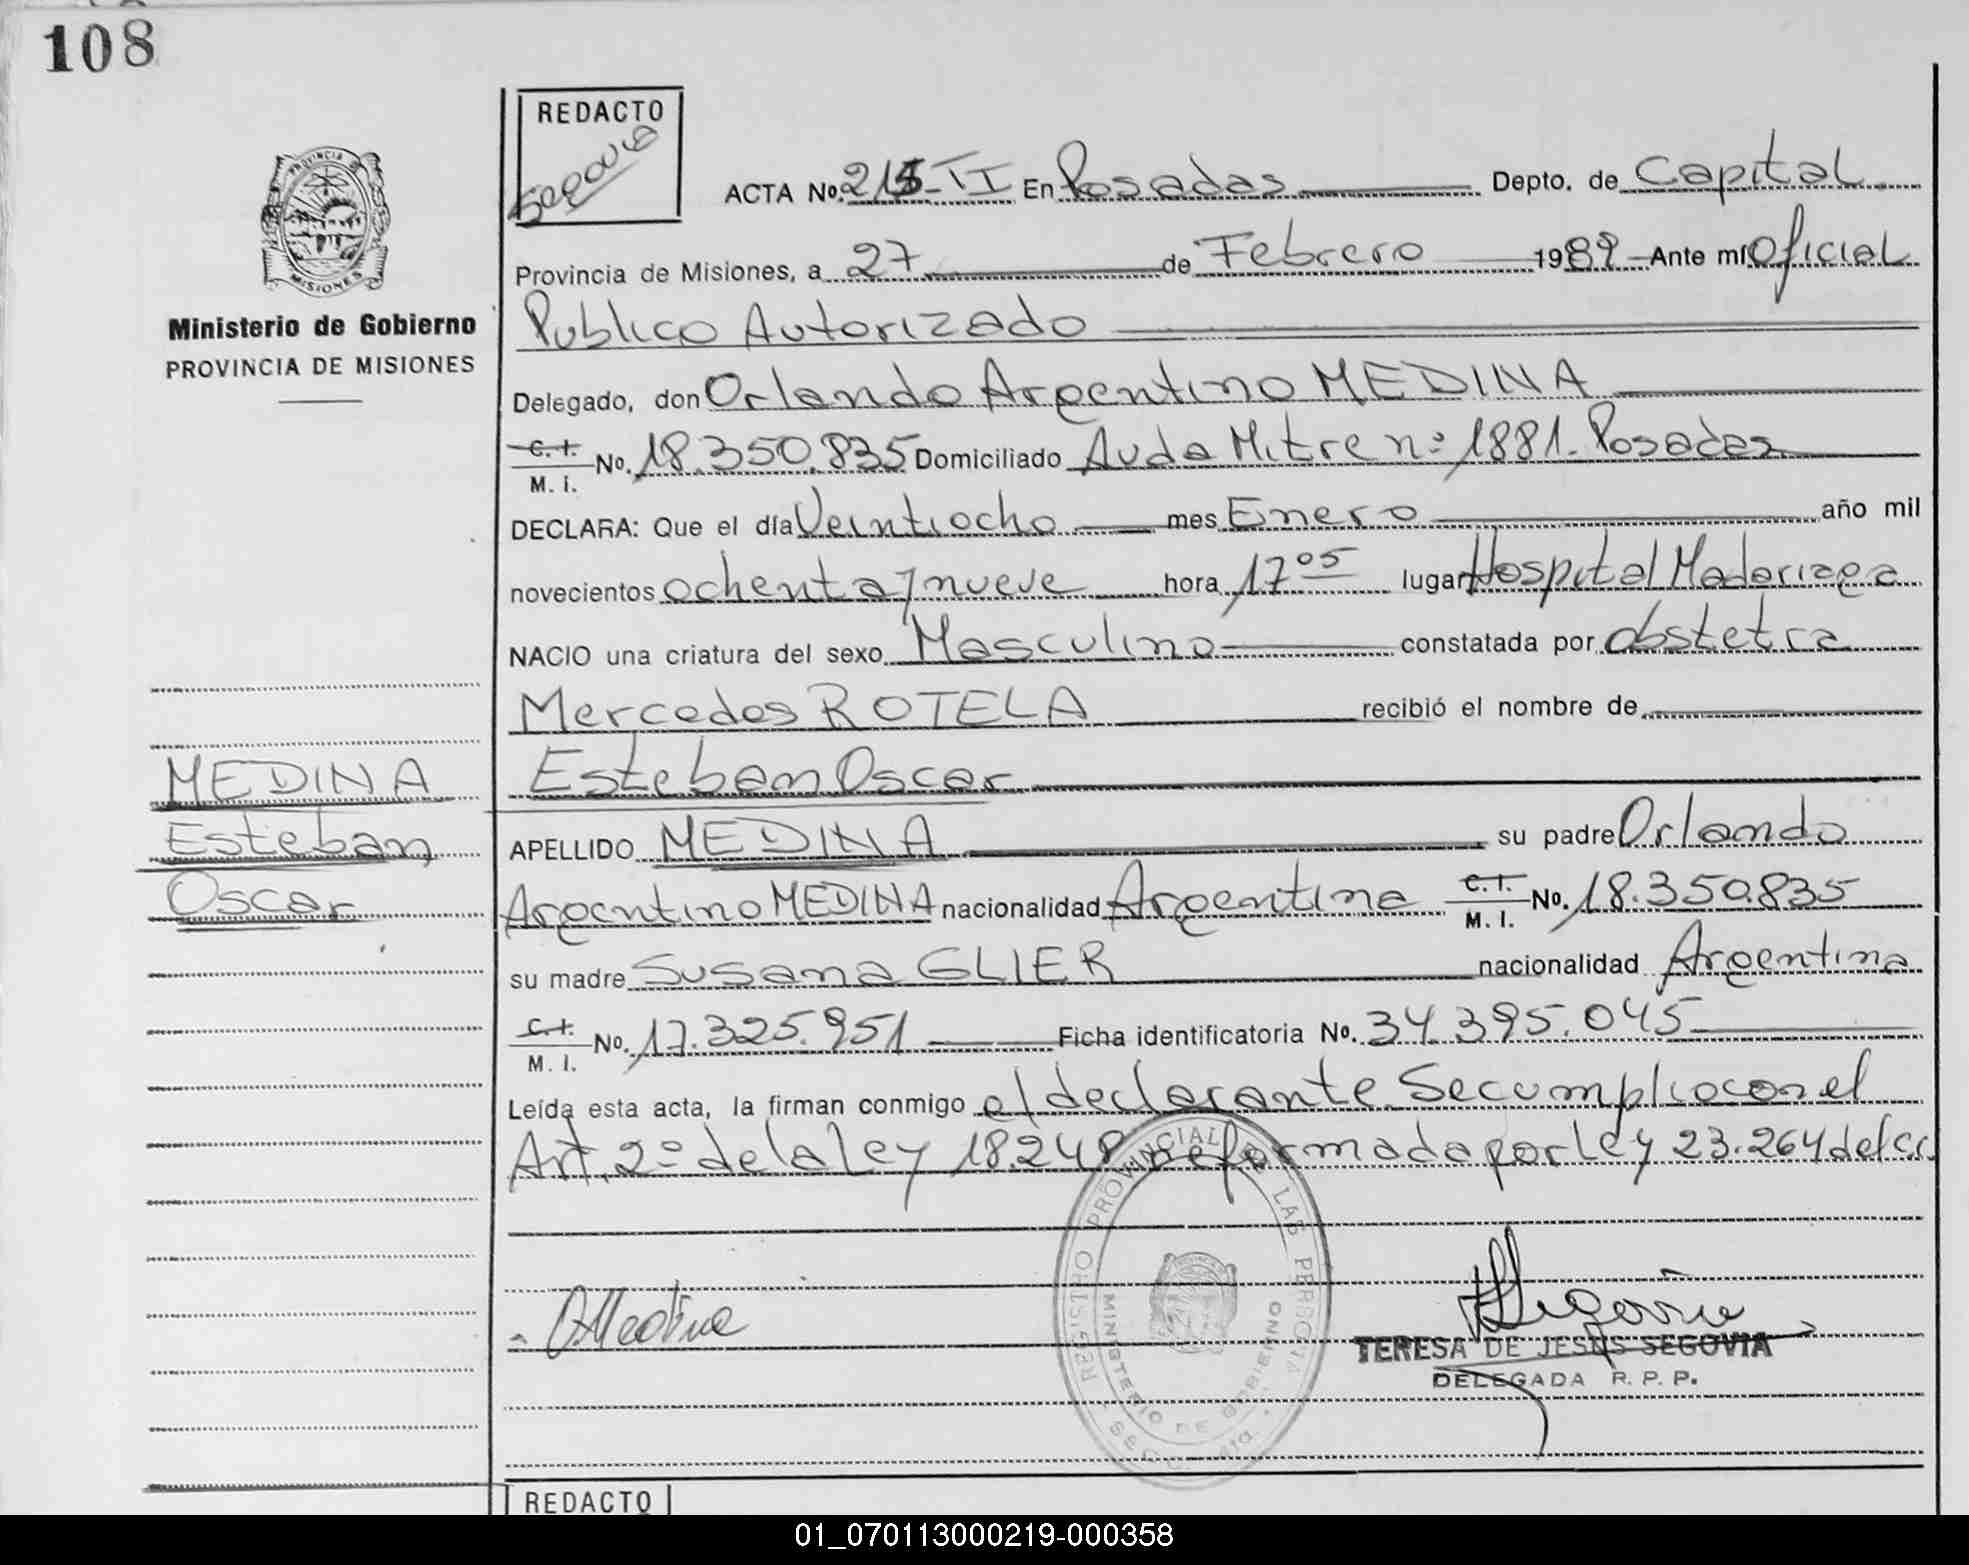 108
REDACTO
Segovia
ACTA No. 215-II En Posadas Depto. de Capital
Provincia de Misiones, a 27 de Febrero 1989 Ante mí Oficial
Publico Autorizado
Ministerio de Gobierno
PROVINCIA DE MISIONES
Delegado, don Orlando Argentino MEDINA
C. I. / M. I. No. 18.350.835 Domiciliado Avda Mitre nº 1881. Posadas
DECLARA: Que el día Veintiocho mes Enero año mil
novecientos ochenta y nueve hora 17 05 lugar Hospital Madariaga
NACIO una criatura del sexo Masculino constatada por obstetra
Mercedes ROTELA recibió el nombre de
MEDINA Esteban Oscar
Esteban APELLIDO MEDINA su padre Orlando
Oscar Argentino MEDINA nacionalidad Argentina C. I. / M. I. No. 18.350.835
su madre Susana GLIER nacionalidad Argentina
C. I. / M. I. No. 17.325.951 Ficha identificatoria No. 34.395.045
Leída esta acta, la firman conmigo el declarante. Se cumplio con el
Art. 2º de la ley 18.248 reformada por ley 23.264 del cc.
REGISTRO PROVINCIAL DE LAS PERSONAS
MINISTERIO DE GOBIERNO
O. Medina
Segovia
TERESA DE JESUS SEGOVIA
DELEGADA R. P. P.
REDACTO
01_070113000219-000358